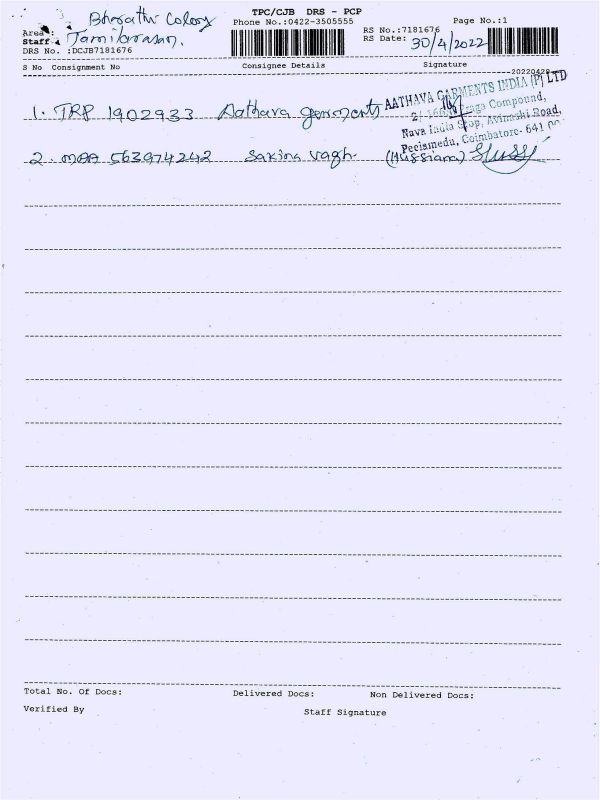 TPC/CJB DRS - PCP
Phone No.:0422-3505555
Page No.:1
Area : Bharathi Colony
Staff : Tamilarasan.
DRS No. :DCJB7181676
RS No.:7181676
RS Date: 30/4/2022
S No Consignment No Consignee Details Signature
20220429
1. TRP 1902933 Aathava garments
AATHAVA GARMENTS INDIA (P) LTD
Compound,
Nava India Stop, Avinashi Road,
Peelamedu, Coimbatore- 641
2. MAA 563974242 Sakina vagh. (Hussiana)
Total No. Of Docs: Delivered Docs: Non Delivered Docs:
Verified By Staff Signature